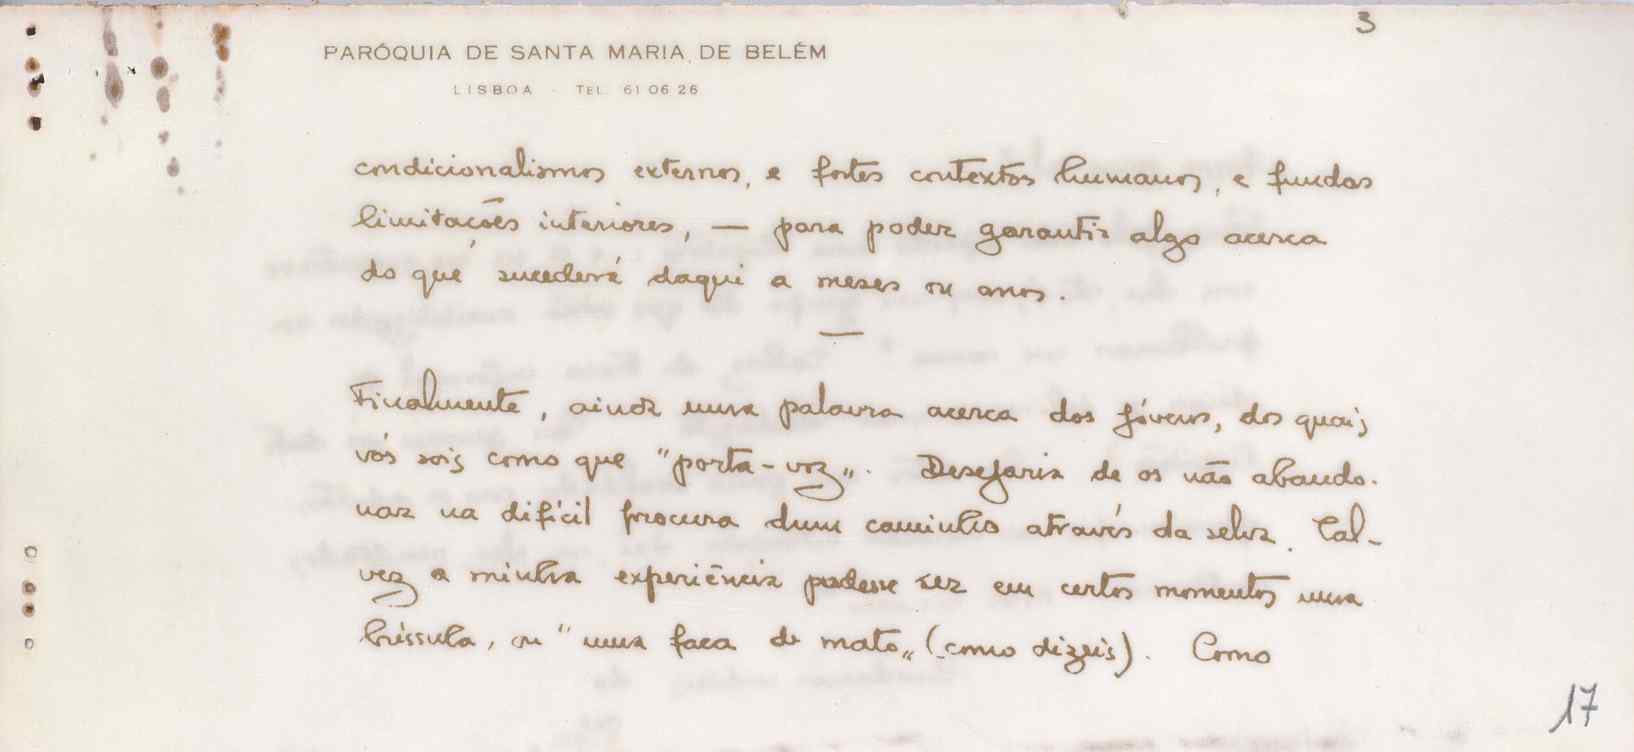 3
PARÓQUIA DE SANTA MARIA DE BELÉM
LISBOA - TEL. 61 06 26
condicionalismos externos, e fortes contextos humanos, e fundas
limitações interiores, — para poder garantir algo acerca
do que sucederá daqui a meses ou anos.
—
Finalmente, ainda uma palavra acerca dos jóvens, dos quais
vós sois como que "porta-voz". Desejaria de os não abando-
nar na difícil procura dum caminho através da selva. Tal-
vez a minha experiência pudesse ser em certos momentos uma
bússula, ou "uma faca de mato" (como dizeis). Como
17